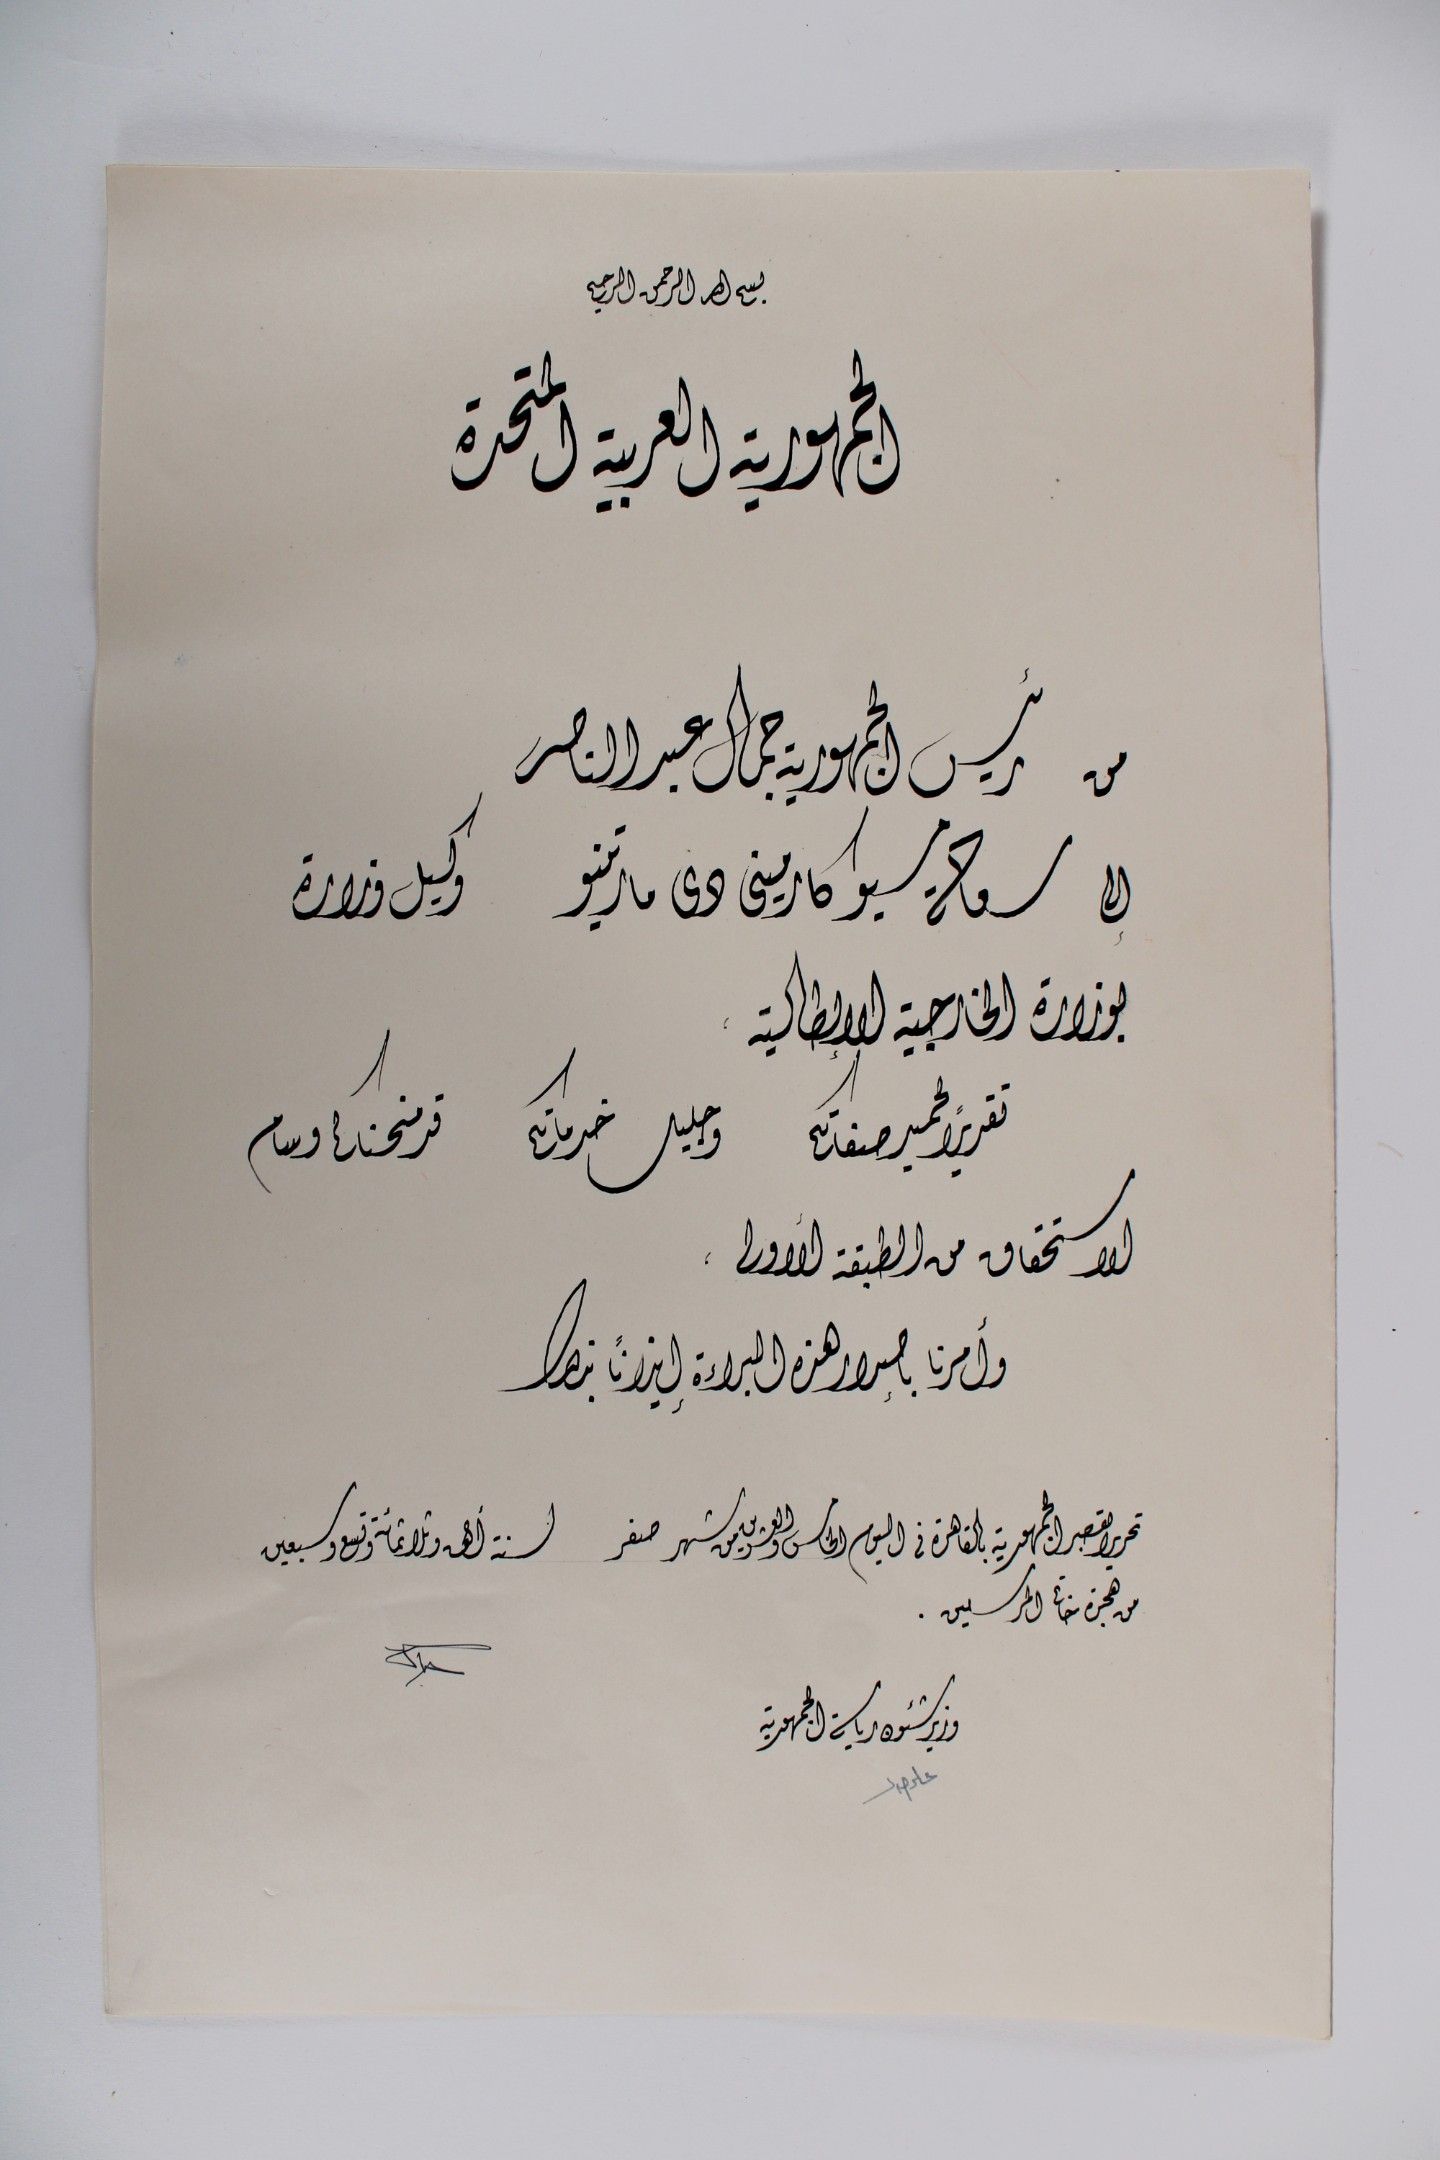 بسم الله الرحمن الرحيم
الجمهورية العربية المتحدة
من رئيس الجمهورية جمال عبد الناصر
إلى سعادة مسيو كارميني دى مارتينو وكيل وزارة
بوزارة الخارجية الإيطالية ،
تقديرًا لحميد صفاتكم وجليل خدماتكم قد منحناكم وسام
الاستحقاق من الطبقة الأولى ،
وأمرنا بإصدار هذه البراءة إيذانًا بذلك
تحريرا بقصر الجمهورية بالقاهرة فى اليوم الخامس والعشرين من شهر صفر لسنة ألف وثلاثمائة وتسع وسبعين
من هجرة خاتم المرسلين .
وزير شئون رياسة الجمهورية